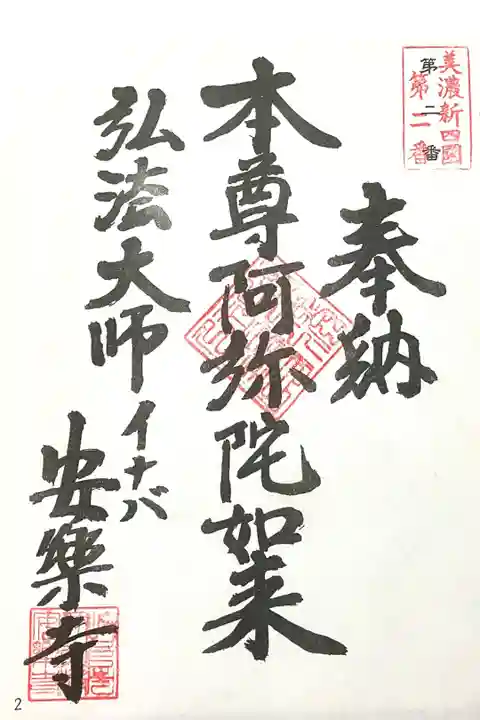 美濃新四國
第二番
第二番
奉納
本尊阿弥陀如来
弘法大師
イナバ
安楽寺
2